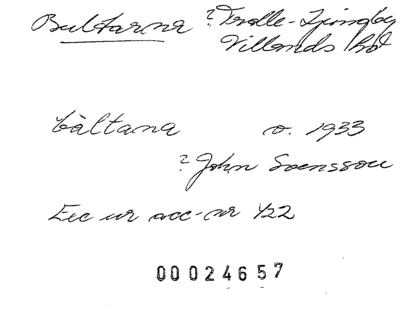 Bultarna ? Trolle-Ljungby
Villands hd
bàltana o. 1933
? John Svensson
Exc ur acc-nr 422
00024657